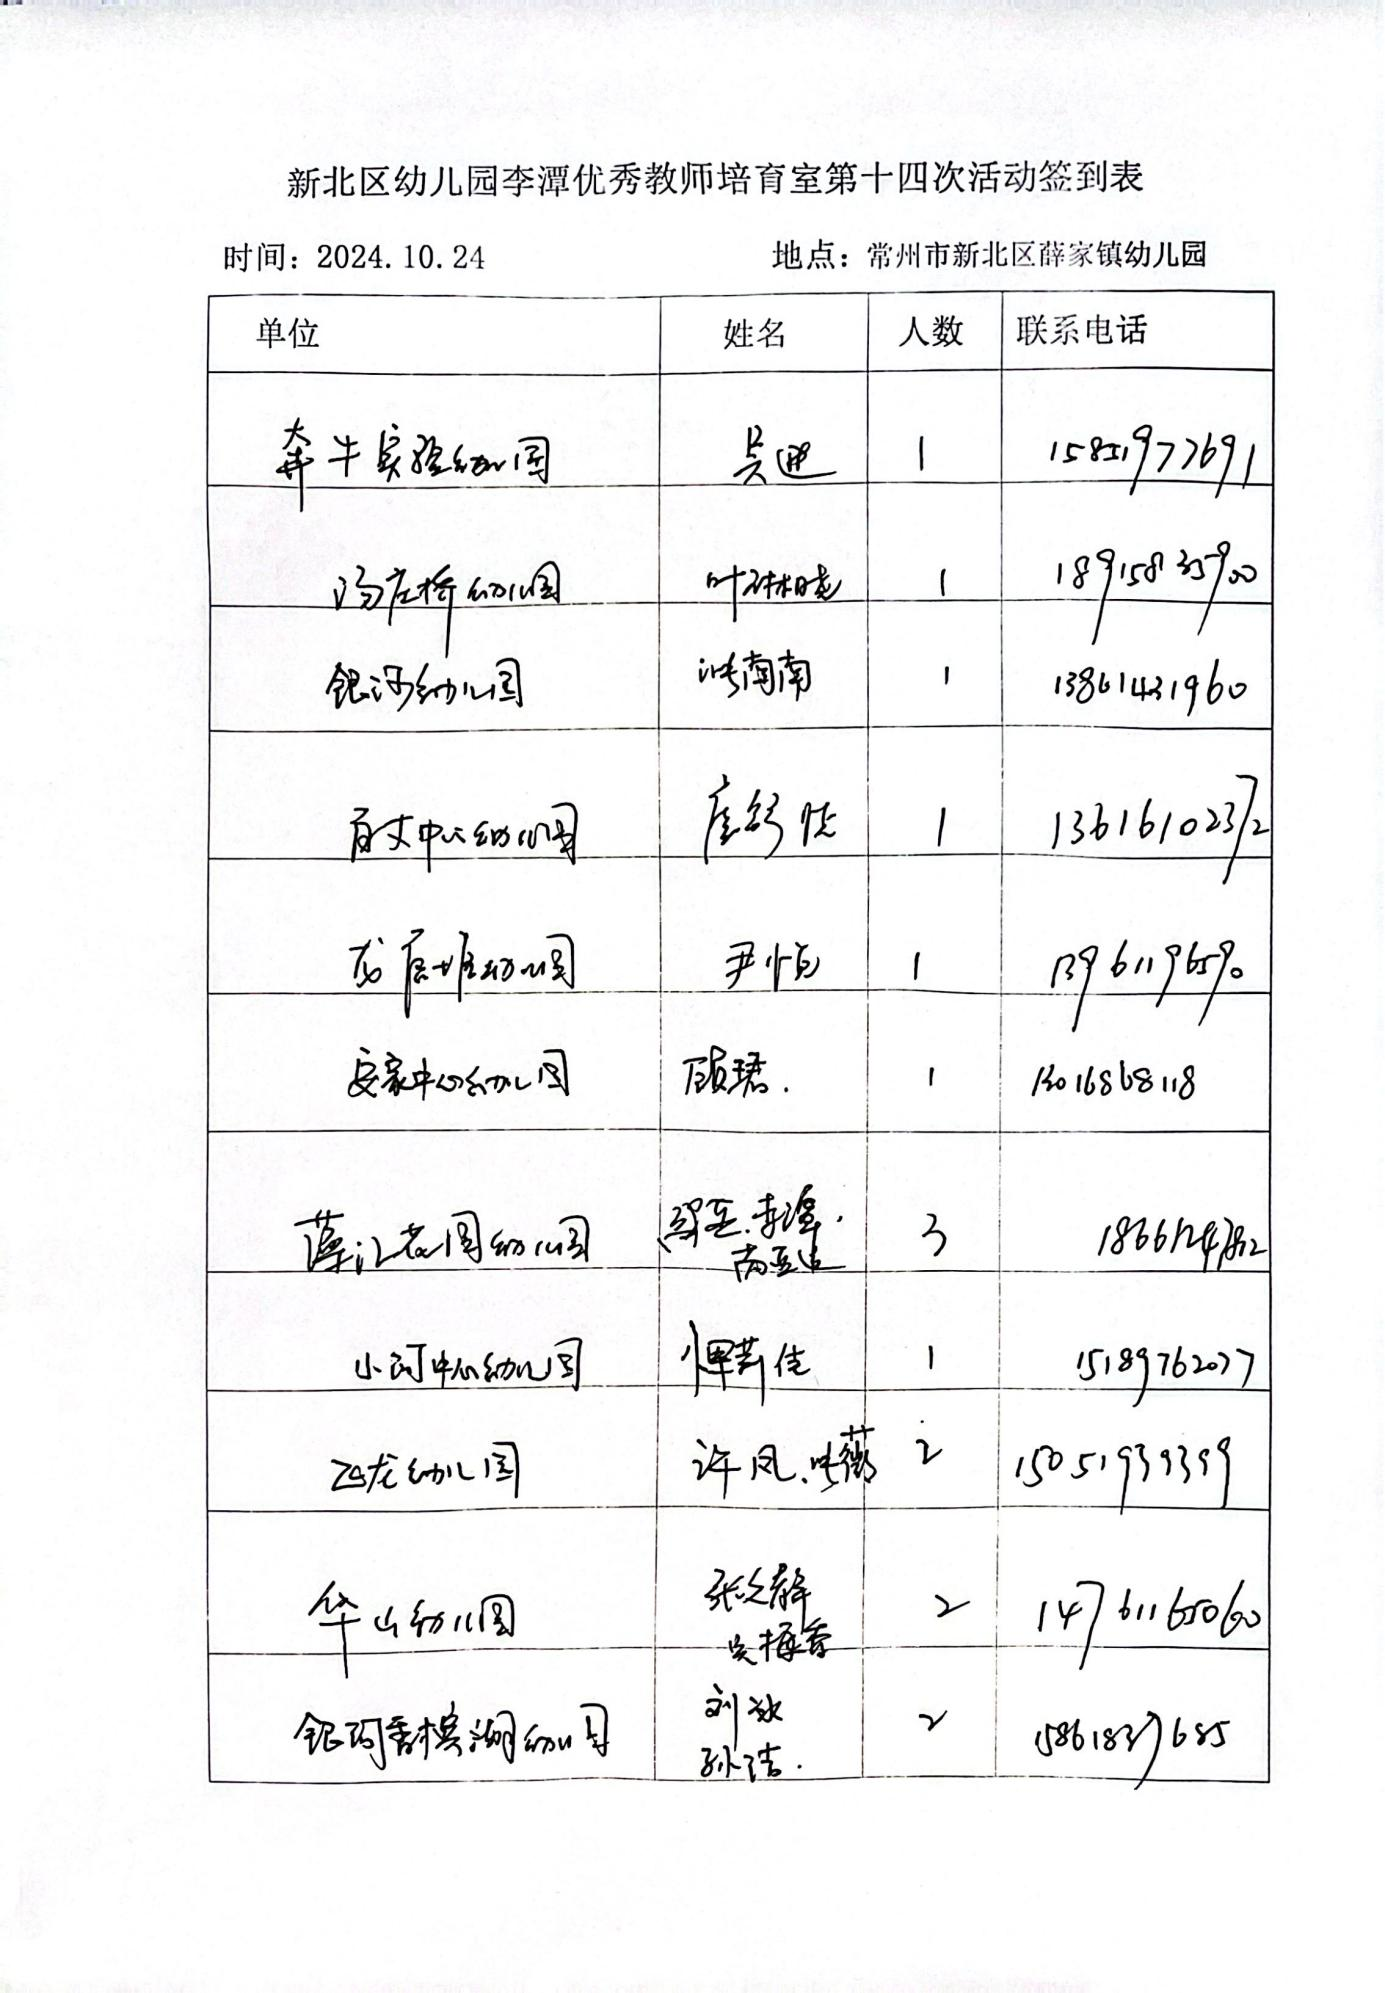 新北区幼儿园李潭优秀教师培育室第十四次活动签到表
时间：2024.10.24 地点：常州市新北区薛家镇幼儿园
单位 姓名 人数 联系电话
奔牛实验幼儿园 吴迪 1 15851977691
汤庄桥幼儿园 叶林晓 1
银河幼儿园 张南南 1 13861431960
百丈中心幼儿园 1 13616102372
龙虎塘幼儿园 尹恒 1 13961196590
安家中心幼儿园 顾珺. 1 13016868118
幼儿园 李潭. 3
小河中心幼儿园 恽莉佳 1 15189762077
飞龙幼儿园 许凤、张薇 2 15051939399
华山幼儿园 张文静 2 14761165060
吴梅香
银河香槟湖幼儿园 刘冰 2 15861837685
孙洁.